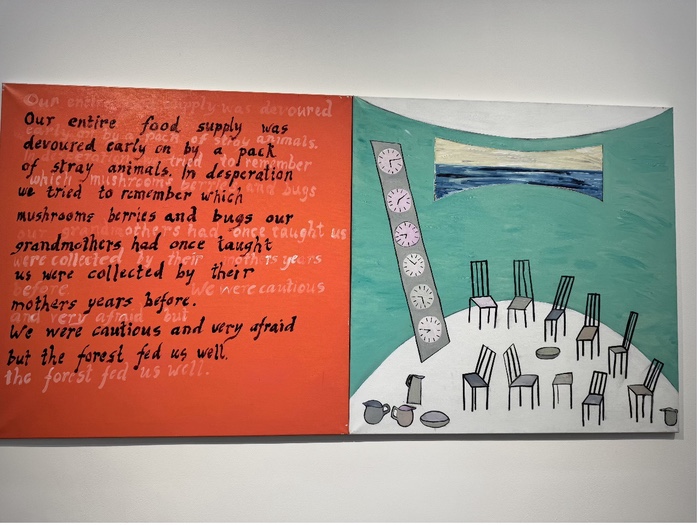 Our entire food supply was devoured
Our entire food supply was
devoured early on by a pack
early on by a pack of stray animals.
of stray animals. In desperation
In desperation we tried to remember
we tried to remember which
which mushrooms berries and bugs
mushrooms berries and bugs our
our grandmothers had once taught us
grandmothers had once taught
were collected by their mothers years
us were collected by their
before. We were cautious
mothers years before.
and very afraid but
We were cautious and very afraid
but the forest fed us well.
the forest fed us well.